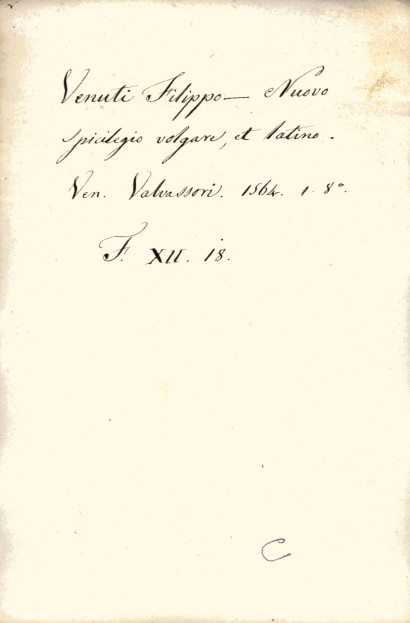 Venuti Filippo — Nuovo
spicilegio volgare, et latino.
Ven. Valvassori. 1564. 1. 8°.
F. XII. 18.
C